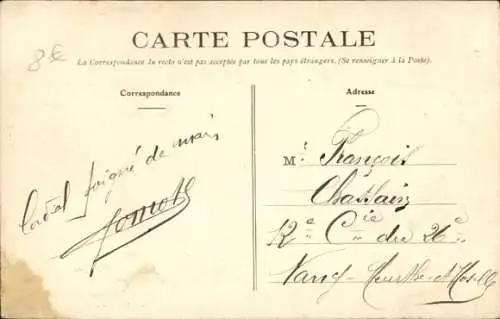 8€
CARTE POSTALE
La Correspondance du recto n'est pas acceptée par tous les pays étrangers. (Se renseigner à la Poste).
Correspondance
Adresse
poigné de main
M. François
Chatlain
12e Cie du 26e
Nancy Meurthe-et-Moselle